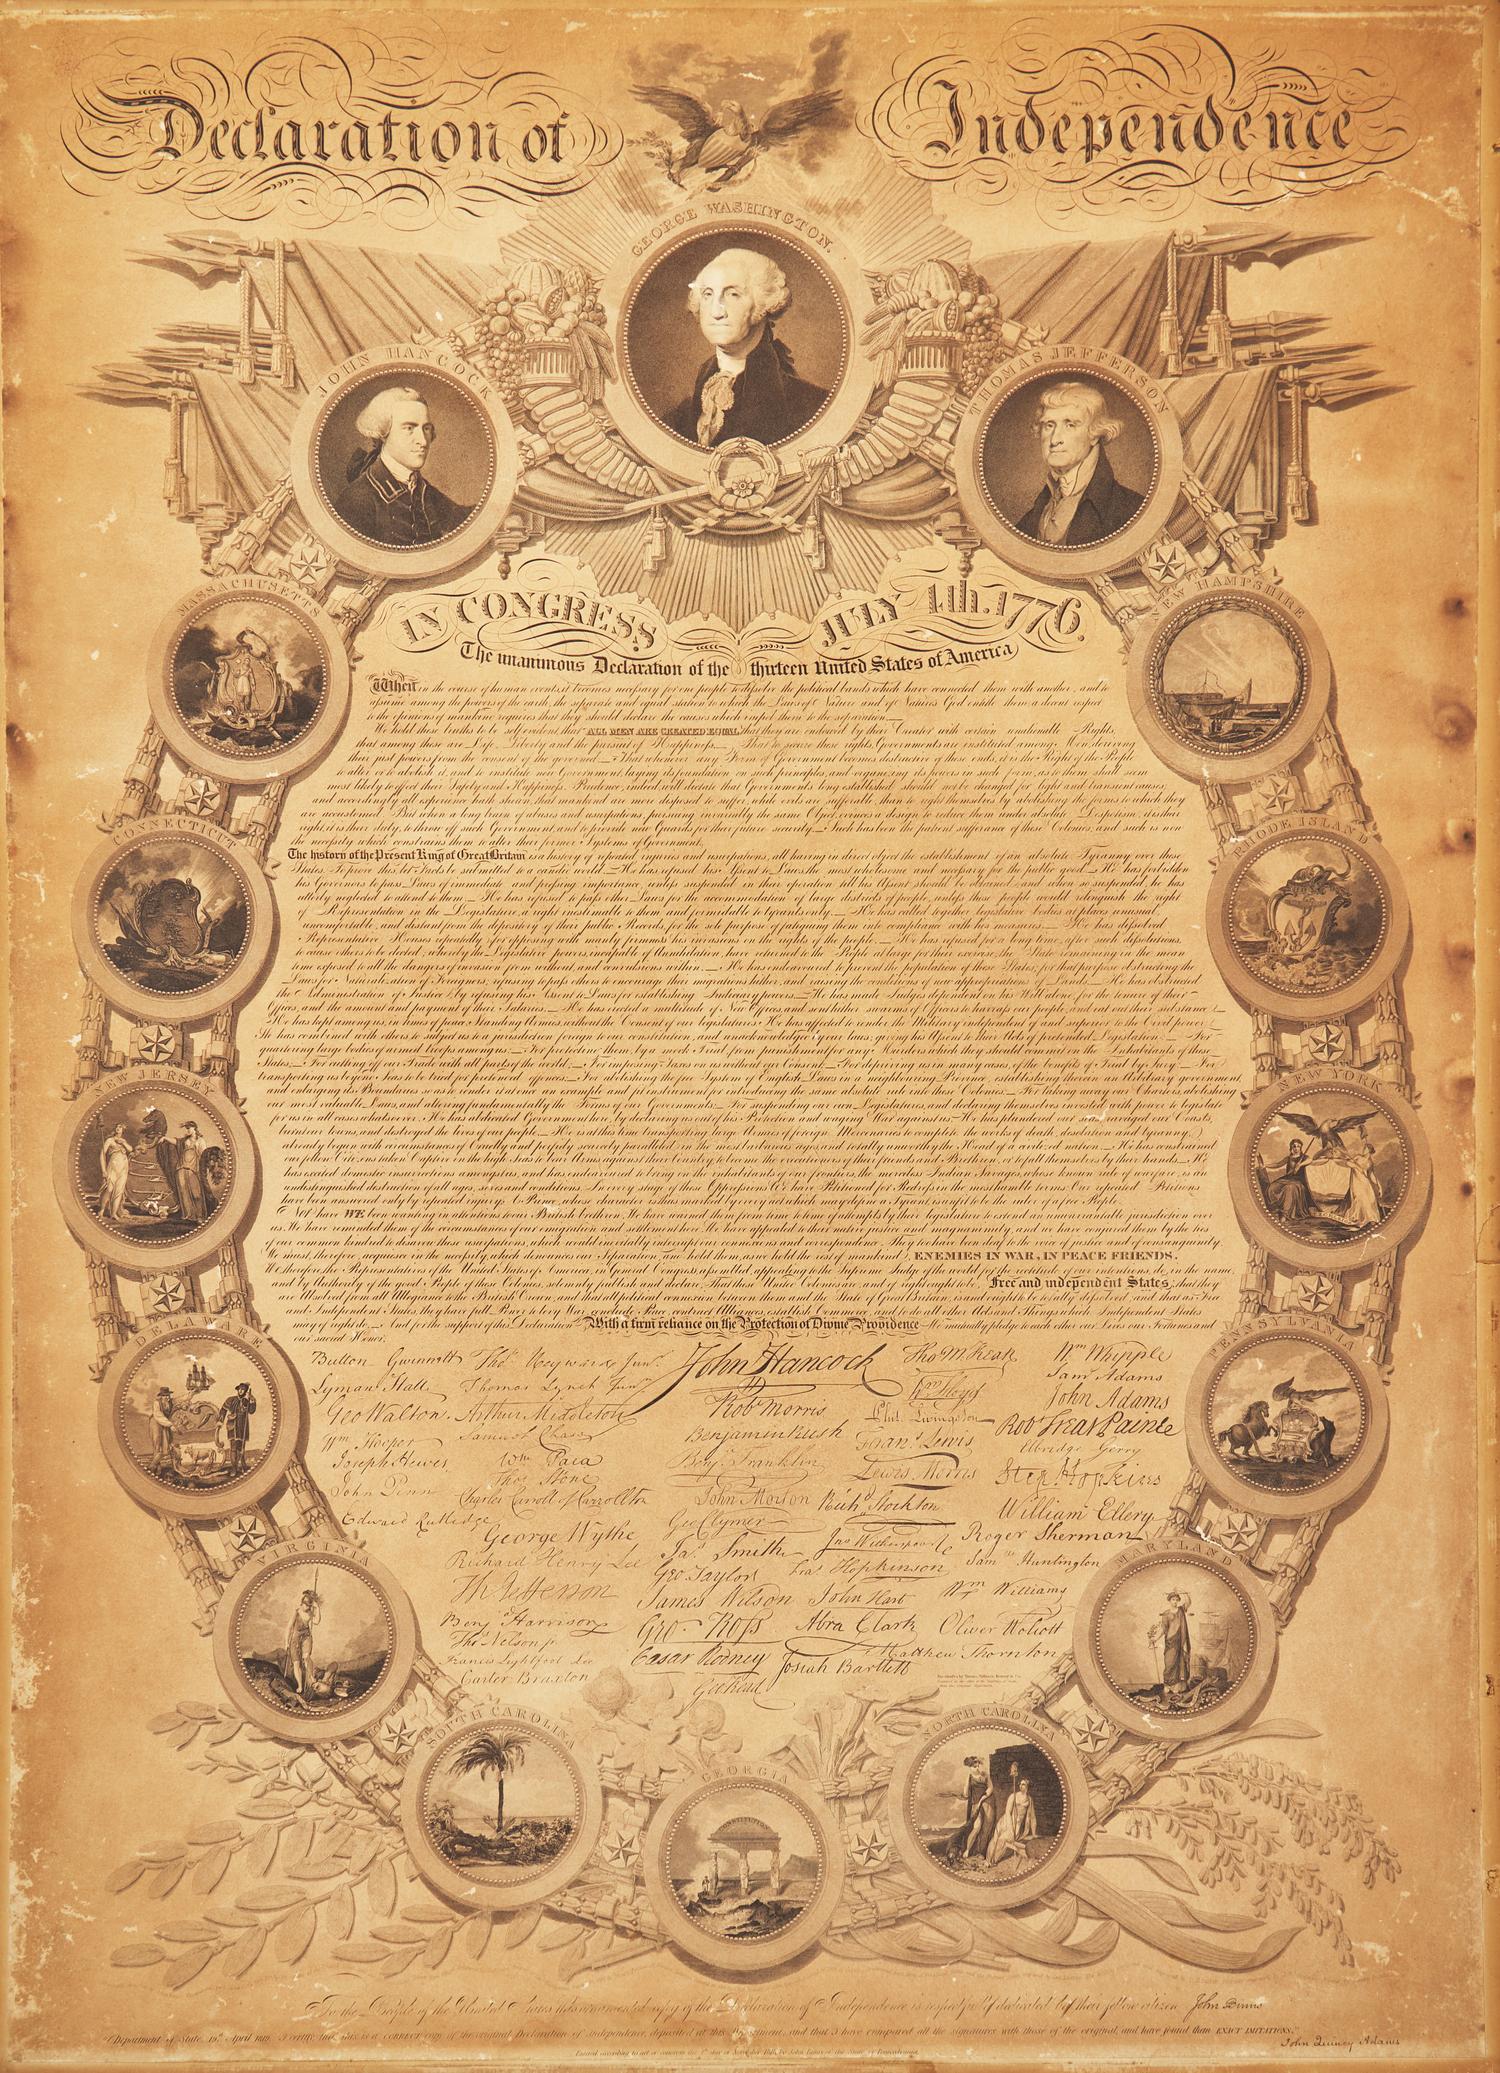 Declaration of Independence
GEORGE WASHINGTON.
JOHN HANCOCK
THOMAS JEFFERSON
IN CONGRESS JULY 4th. 1776.
The unanimous Declaration of the thirteen United States of America
MASSACHUSETTS
NEW HAMPSHIRE
CONNECTICUT
RHODE ISLAND
NEW JERSEY
NEW YORK
DELAWARE
PENNSYLVANIA
VIRGINIA
MARYLAND
SOUTH CAROLINA
NORTH CAROLINA
GEORGIA
When in the course of human events, it becomes necessary for one people to dissolve the political bands which have connected them with another, and to
assume among the powers of the earth, the separate and equal station to which the Laws of Nature and of Natures God entitle them, a decent respect
to the opinions of mankind requires that they should declare the causes which impel them to the separation.
We hold these truths to be self evident, that ALL MEN ARE CREATED EQUAL, that they are endowed by their Creator with certain unalienable Rights,
that among these are Life, Liberty and the pursuit of Happiness. — That to secure these rights, Governments are instituted among Men, deriving
their just powers from the consent of the governed — That whenever any Form of Government becomes destructive of these ends, it is the Right of the People
to alter or to abolish it, and to institute new Government, laying its foundation on such principles, and organizing its powers in such form, as to them shall seem
most likely to effect their Safety and Happiness. Prudence, indeed, will dictate that Governments long established should not be changed for light and transient causes
and accordingly all experience hath shewn, that mankind are more disposed to suffer, while evils are sufferable, than to right themselves by abolishing the forms to which they
are accustomed. But when a long train of abuses and usurpations, pursuing invariably the same Object, evinces a design to reduce them under absolute Despotism, it is their
right, it is their duty, to throw off such Government, and to provide new Guards for their future security. — Such has been the patient sufferance of these Colonies; and such is now
the necessity which constrains them to alter their former Systems of Government.
The history of the Present King of Great Britain is a history of repeated injuries and usurpations, all having in direct object the establishment of an absolute Tyranny over these
States. To prove this, let Facts be submitted to a candid world. — He has refused his Assent to Laws, the most wholesome and necessary for the public good. — He has forbidden
his Governors to pass Laws of immediate and pressing importance, unless suspended in their operation till his Assent should be obtained; and when so suspended, he has
utterly neglected to attend to them. — He has refused to pass other Laws for the accommodation of large districts of people, unless those people would relinquish the right
of Representation in the Legislature, a right inestimable to them and formidable to tyrants only. — He has called together legislative bodies at places unusual,
uncomfortable, and distant from the depository of their public Records, for the sole purpose of fatiguing them into compliance with his measures. — He has dissolved
Representative Houses repeatedly, for opposing with manly firmness his invasions on the rights of the people. — He has refused for a long time, after such dissolutions,
to cause others to be elected; whereby the Legislative powers, incapable of Annihilation, have returned to the People at large for their exercise; the State remaining in the mean
time exposed to all the dangers of invasion from without, and convulsions within. — He has endeavoured to prevent the population of these States; for that purpose obstructing the
Laws for Naturalization of Foreigners; refusing to pass others to encourage their migrations hither, and raising the conditions of new appropriations of Lands. — He has obstructed
the Administration of Justice, by refusing his Assent to Laws for establishing Judiciary powers. — He has made Judges dependent on his Will alone, for the tenure of their
Offices, and the amount and payment of their Salaries. — He has erected a multitude of New Offices, and sent hither swarms of Officers to harrass our people, and eat out their substance. —
He has kept among us, in times of peace, Standing Armies, without the Consent of our legislatures. He has affected to render the Military independent of and superior to the Civil power.
He has combined with others to subject us to a jurisdiction foreign to our constitution, and unacknowledged by our laws; giving his Assent to their Acts of pretended Legislation: — For
quartering large bodies of armed troops among us: — For protecting them, by a mock Trial, from punishment for any Murders which they should commit on the Inhabitants of these
States: — For cutting off our Trade with all parts of the world: — For imposing Taxes on us without our Consent: — For depriving us in many cases, of the benefits of Trial by Jury: — For
transporting us beyond Seas to be tried for pretended offences: — For abolishing the free System of English Laws in a neighbouring Province, establishing therein an Arbitrary government,
and enlarging its Boundaries so as to render it at once an example and fit instrument for introducing the same absolute rule into these Colonies: — For taking away our Charters, abolishing
our most valuable Laws, and altering fundamentally the Forms of our Governments: — For suspending our own Legislatures, and declaring themselves invested with power to legislate
for us in all cases whatsoever. — He has abdicated Government here, by declaring us out of his Protection and waging War against us. — He has plundered our seas, ravaged our Coasts,
burnt our towns, and destroyed the lives of our people. — He is at this time transporting large Armies of foreign Mercenaries to compleat the works of death, desolation and tyranny,
already begun with circumstances of Cruelty and perfidy scarcely paralleled in the most barbarous ages, and totally unworthy the Head of a civilized nation. — He has constrained
our fellow Citizens taken Captive on the high Seas to bear Arms against their Country, to become the executioners of their friends and Brethren, or to fall themselves by their hands. — He
has excited domestic insurrections amongst us, and has endeavoured to bring on the inhabitants of our frontiers, the merciless Indian Savages, whose known rule of warfare, is an
undistinguished destruction of all ages, sexes and conditions. In every stage of these Oppressions We have Petitioned for Redress in the most humble terms: Our repeated Petitions
have been answered only by repeated injury. A Prince, whose character is thus marked by every act which may define a Tyrant, is unfit to be the ruler of a free People.
Nor have WE been wanting in attentions to our British brethren. We have warned them from time to time of attempts by their legislature to extend an unwarrantable jurisdiction over
us. We have reminded them of the circumstances of our emigration and settlement here. We have appealed to their native justice and magnanimity, and we have conjured them by the ties
of our common kindred to disavow these usurpations, which, would inevitably interrupt our connexions and correspondence. They too have been deaf to the voice of justice and of consanguinity.
We must, therefore, acquiesce in the necessity, which denounces our Separation, and hold them, as we hold the rest of mankind, ENEMIES IN WAR, IN PEACE FRIENDS.
We therefore, the Representatives of the United States of America, in General Congress, assembled, appealing to the Supreme Judge of the world for the rectitude of our intentions, do, in the name,
and by Authority of the good People of these Colonies, solemnly publish and declare, That these United Colonies are, and of right ought to be Free and independent States; that they
are Absolved from all Allegiance to the British Crown, and that all political connexion between them and the State of Great Britain, is and ought to be totally dissolved; and that as Free
and Independent States, they have full Power to levy War, conclude Peace, contract Alliances, establish Commerce, and to do all other Acts and Things which Independent States
may of right do. — And for the support of this Declaration, With a firm reliance on the Protection of Divine Providence We mutually pledge to each other our Lives, our Fortunes and
our sacred Honor.
Button Gwinnett Thos. Heyward Junr. John Hancock Tho M.Kean Wm Whipple
Lyman Hall Thomas Lynch Junr. Wm Floyd Saml Adams
Geo Walton. Arthur Middleton Robt Morris Phil. Livingston John Adams
Wm Hooper Samuel Chase Benjamin Rush Frans. Lewis Robt Treat Paine
Joseph Hewes Wm Paca Benj. Franklin Lewis Morris Elbridge Gerry
John Penn Thos. Stone John Morton Richd. Stockton Step. Hopkins
Edward Rutledge Charles Carroll of Carrollton Geo Clymer William Ellery
George Wythe Jas. Smith Jno Witherspoon Roger Sherman
Richard Henry Lee Geo. Taylor Fras. Hopkinson Saml Huntington
Th Jefferson James Wilson John Hart Wm Williams
Benj Harrison Geo. Ross Abra Clark Oliver Wolcott
Thos. Nelson jr. Cæsar Rodney Josiah Bartlett Matthew Thornton
Francis Lightfoot Lee
Carter Braxton Geo Read
To the People of the United States this ornamented copy of the Declaration of Independence is respectfully dedicated by their fellow citizen John Binns
Department of State, 19th April 1819. I certify, that this is a CORRECT copy of the original Declaration of Independence, deposited at this Department; and that I have compared all the signatures with those of the original, and have found them EXACT IMITATIONS.
John Quincy Adams